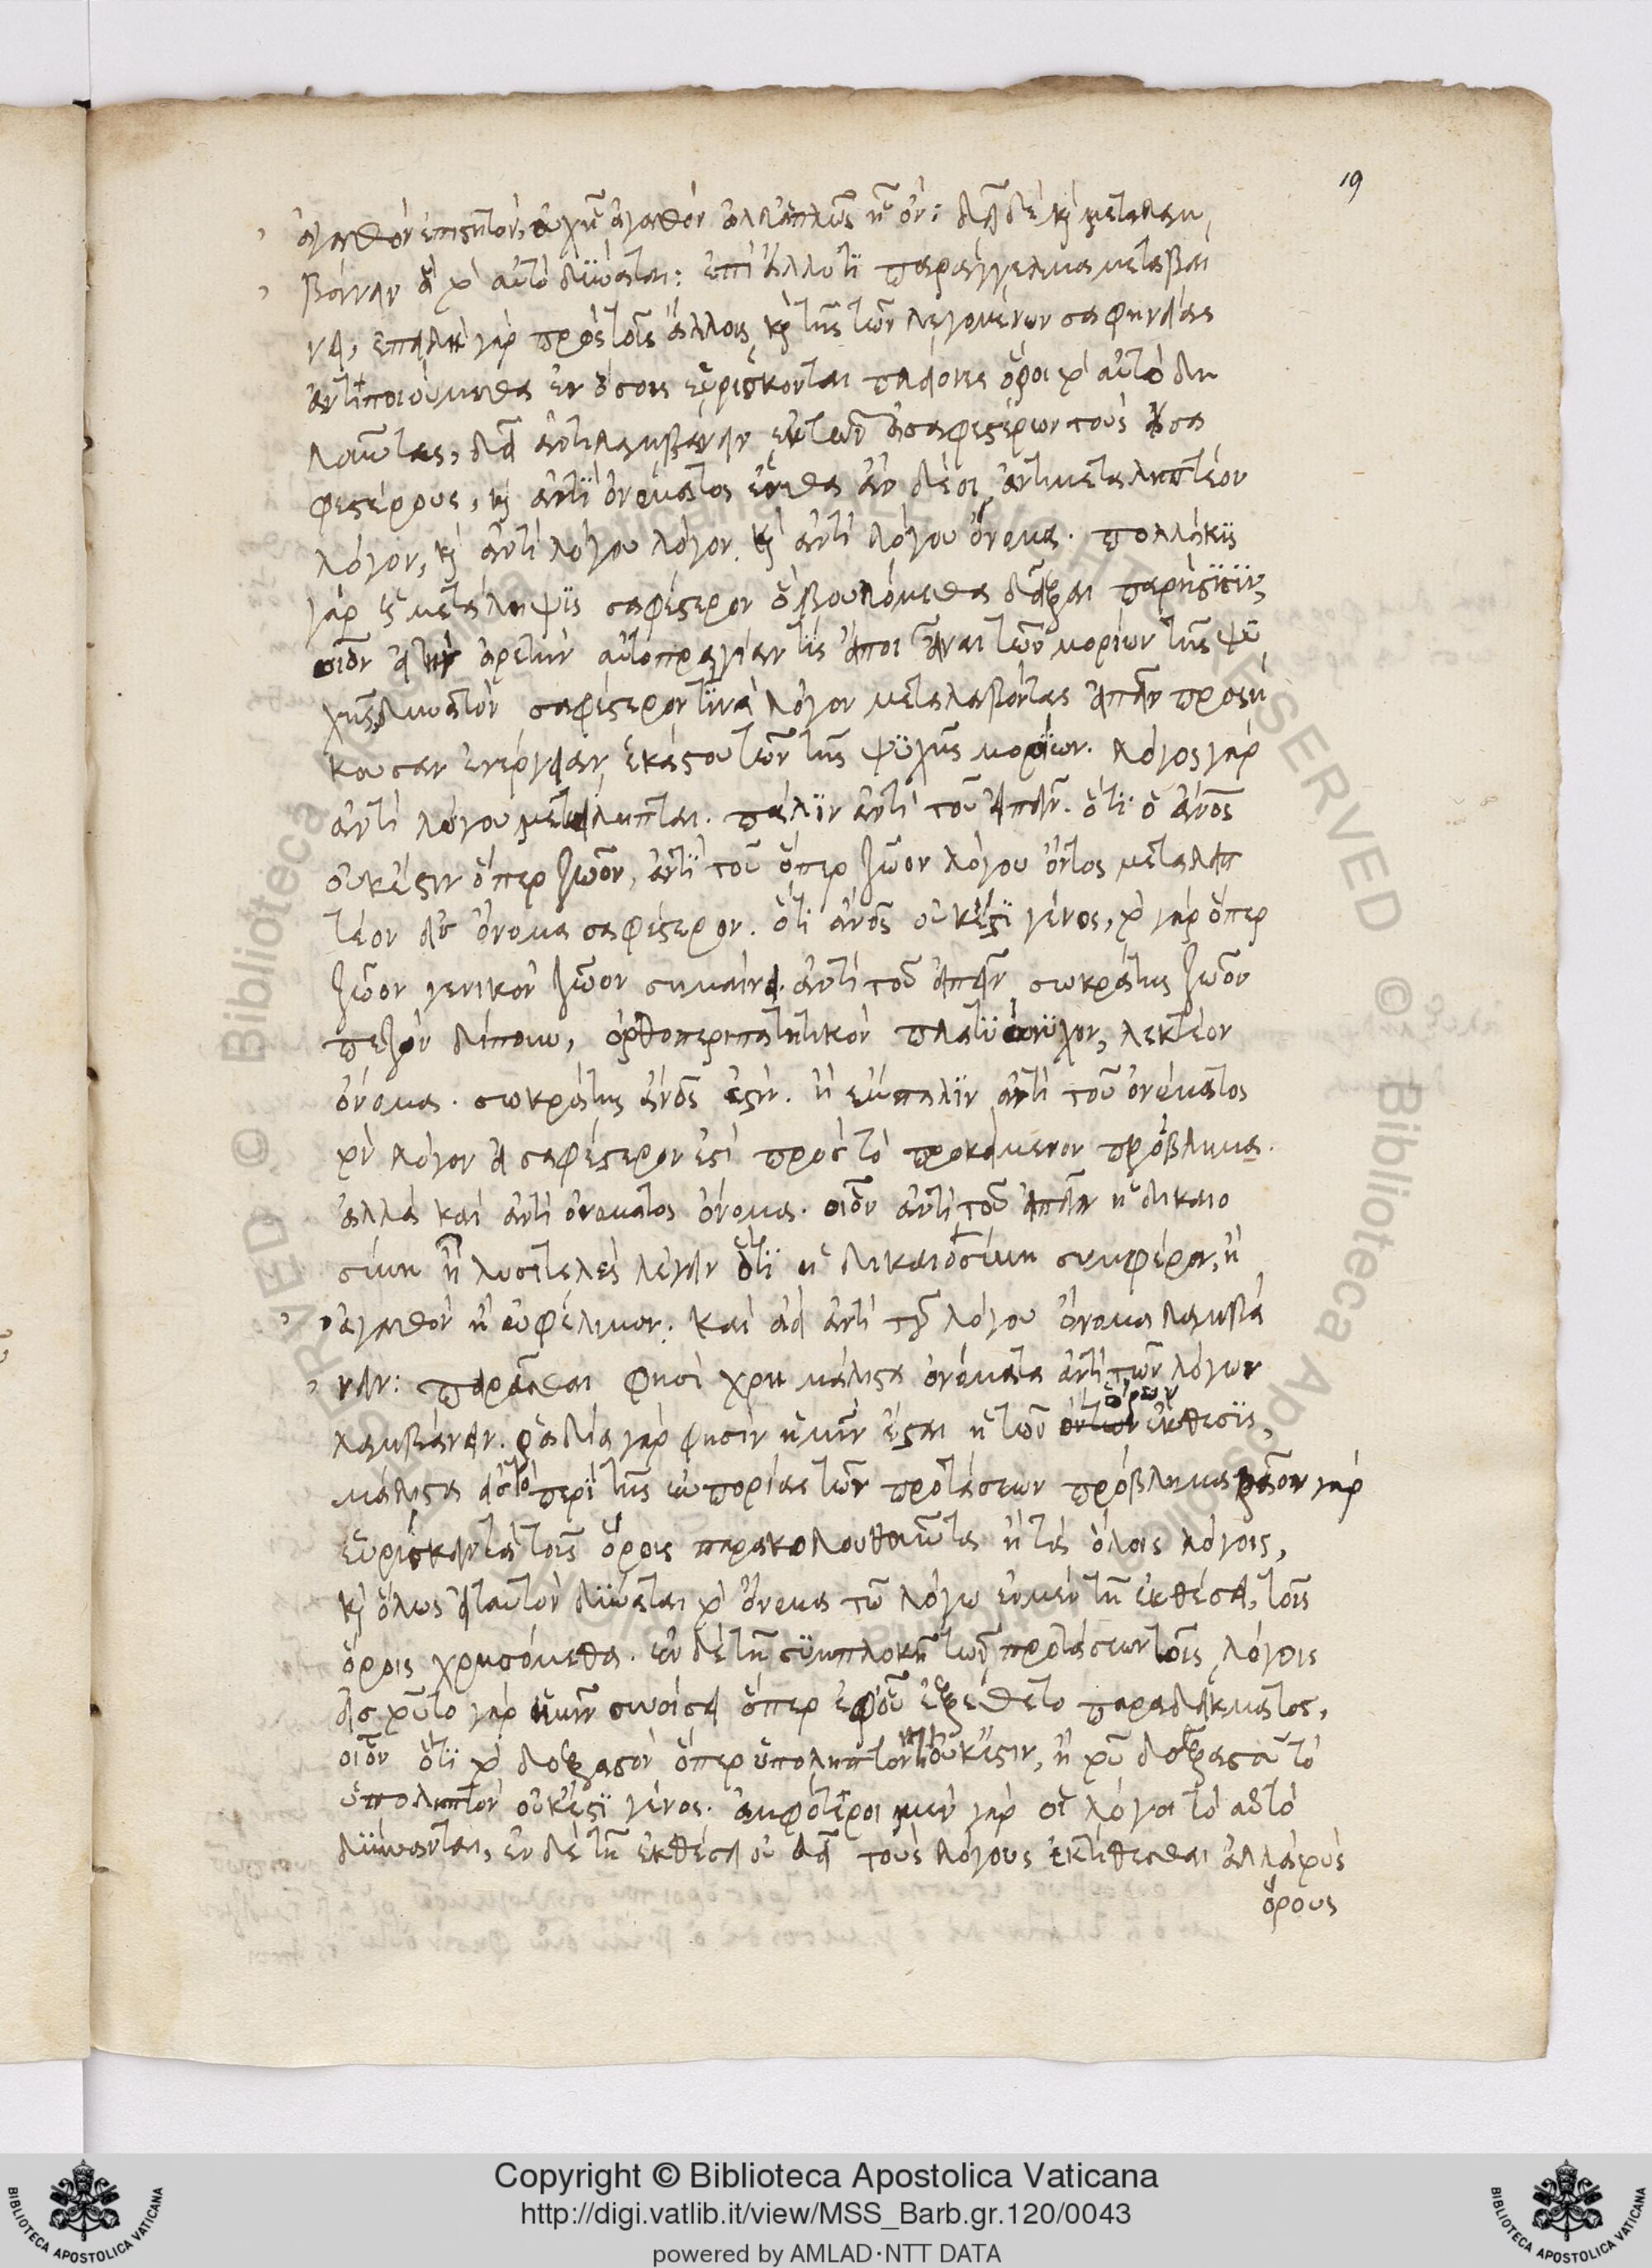 19
ἀγαθὸν ἐπιστητόν, οὐχ ᾗ ἀγαθὸν ἀλλ' ἁπλῶς ᾗ ὄν: δεῖ δὲ καὶ μεταλαμ
βάνειν ἃ τὸ αὐτὸ δύναται: ἐπὶ ἄλλο τι παράγγελμα μεταβαί
νει, ἐπειδὴ γὰρ πρὸς τοῖς ἄλλοις καὶ τῆς τῶν λεγομένων σαφηνείας
ἀντιποιούμεθα ἐν ὅσοις εὑρίσκονται πλείονες ὅροι τὸ αὐτὸ δη
λοῦντες, δεῖ ἀντιλαμβάνειν ἐκ τῶν ἀσαφεστέρων τοὺς σα
φεστέρους, καὶ ἀντὶ ὀνόματος ἔνθα ἂν δέοι ἀντιμεταληπτέον
λόγον, καὶ ἀντὶ λόγου λόγον καὶ ἀντὶ λόγου ὄνομα. πολλάκις
γὰρ ἡ μετάληψις σαφέστερον ὃ βουλόμεθα δεῖξαι παρίστησιν,
οἷον εἰ τὴν ἀρετὴν αὐτοπραγίαν τὶς εἴποι εἶναι τῶν μορίων τῆς ψυ
χῆς δυνατὸν σαφέστερόν τινα λόγον μεταλαβόντας εἰπεῖν προσή
κουσαν ἐνέργειαν ἑκάστου τῶν τῆς ψυχῆς μορίων. λόγος γὰρ
ἀντὶ λόγου μετείληπται. πάλιν ἀντὶ τοῦ εἰπεῖν. ὅτι ὁ ἄνος
οὐκ ἔστιν ὅπερ ζῷον, ἀντὶ τοῦ ὅπερ ζῷον λόγου ὄντος μεταληπ
τέον εἰς ὄνομα σαφέστερον. ὅτι ἄνος οὐκ ἔστι γένος, τὸ γὰρ ὅπερ
ζῷον γενικὸν ζῷον σημαίνει. ἀντὶ τοῦ εἰπεῖν σωκράτης ζῷον
πεζὸν δίπουν, ὀρθοπεριπατητικὸν πλατυώνυχον, λεκτέον
ὄνομα. σωκράτης ἄνος ἐστίν. ἢ ἔμπαλιν ἀντὶ τοῦ ὀνόματος
τὸν λόγον εἰ σαφέστερον ἐστὶ πρὸς τὸ προκείμενον πρόβλημα.
ἀλλὰ καὶ ἀντὶ ὀνόματος ὄνομα. οἷον ἀντὶ τοῦ εἰπεῖν ἡ δικαιο
σύνη ἢ λυσιτελές λέγειν ὅτι ἡ δικαιοσύνη συμφέρον, ἢ
ἀγαθὸν ἢ ὠφέλιμον. καὶ ἀεὶ ἀντὶ τοῦ λόγου ὄνομα λαμβά
νειν: πειρᾶσθαι φησὶ χρὴ μάλιστα ὀνόματα ἀντὶ τῶν λόγων
λαμβάνειν. ῥᾳδία γὰρ φησὶν ἡμῖν ἔσται ἡ τῶν ὄντων ὅρων ἔκθεσις,
μάλιστα εἰς τὸ περὶ τῆς εὐπορίας τῶν προτάσεων πρόβλημα ῥᾷον γὰρ
εὑρίσκειν τὰ τοῖς ὅροις παρακολουθοῦντα ἢ τὰ ὅλοις λόγοις,
καὶ ὅλως εἰ ταυτὸν δύναται τὸ ὄνομα τῷ λόγῳ ἐν μὲν τῇ ἐκθέσει, τοῖς
ὅροις χρησόμεθα. ἐν δὲ τῇ συμπλοκῇ τῶν προτάσεων τοῖς λόγοις
εἰς τοῦτο γὰρ ἡμῖν συνοίσει ὅπερ ἐφ' οὗ ἐξέθετο παραδείγματος,
οἷον ὅτι τὸ δοξαστὸν ὅπερ ὑποληπτόν τι οὐκ ἔστιν, ἢ τοῦ δοξαστοῦ τὸ
ὑποληπτὸν οὐκ ἔστι γένος. ἀμφότεροι μὲν γὰρ οἱ λόγοι τὸ αὐτὸ
δύνανται, ἐν δὲ τῇ ἐκθέσει οὐ δεῖ τοὺς λόγους ἐκτίθεσθαι ἀλλὰ τοὺς
ὅρους
Copyright © Biblioteca Apostolica Vaticana
http://digi.vatlib.it/view/MSS_Barb.gr.120/0043
powered by AMLAD·NTT DATA